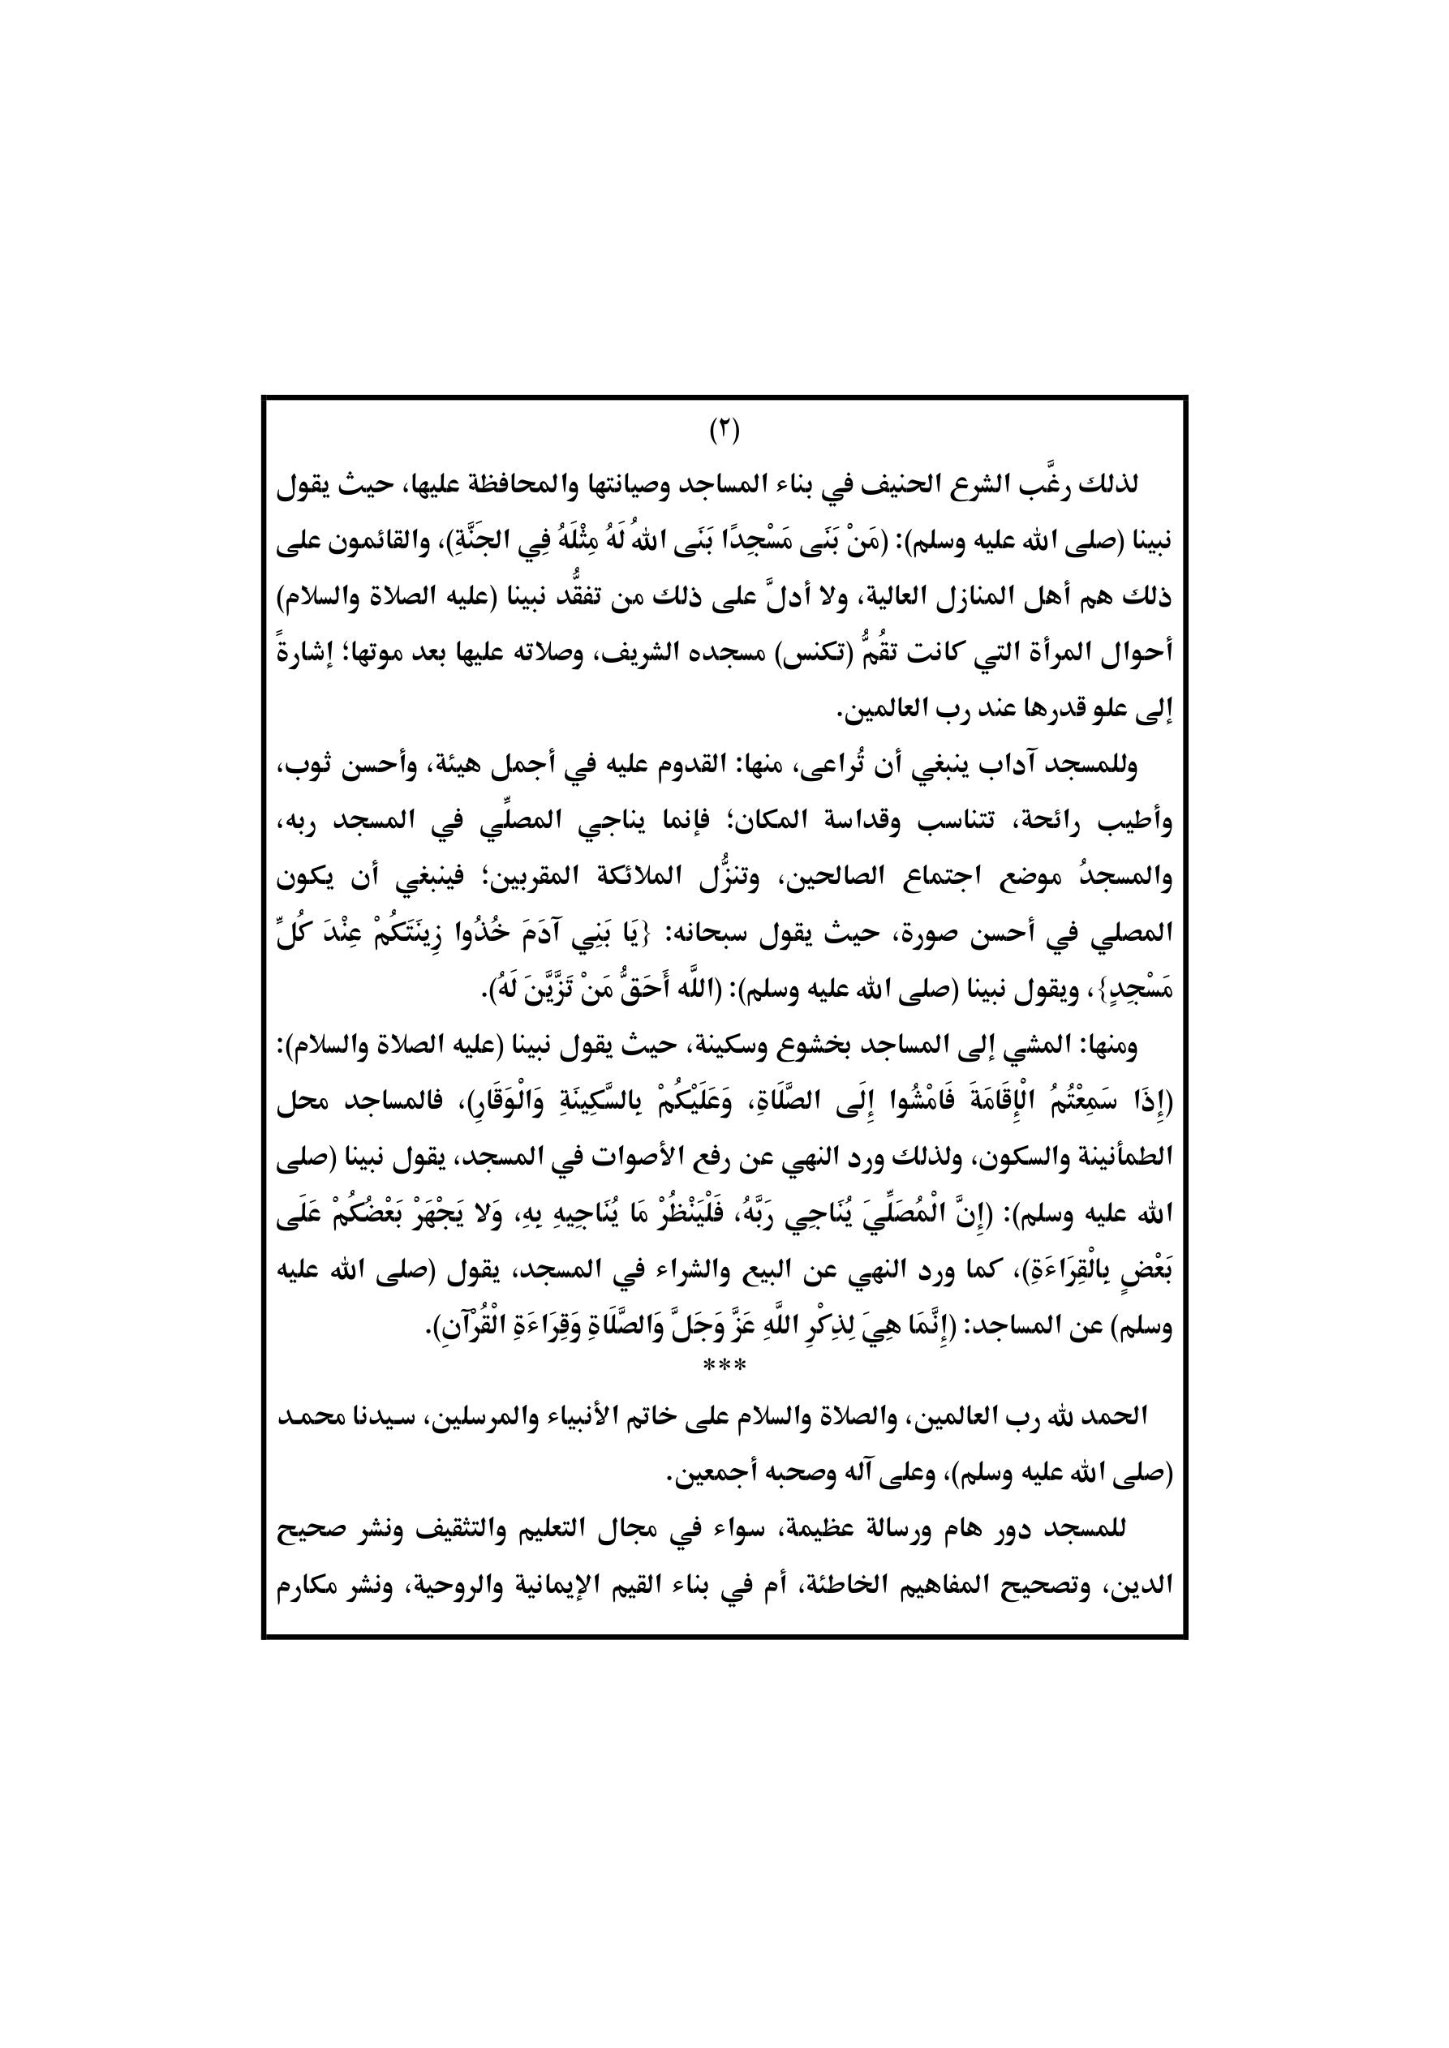 (٢)
لذلك رغَّب الشرع الحنيف في بناء المساجد وصيانتها والمحافظة عليها، حيث يقول
نبينا (صلى الله عليه وسلم): (مَنْ بَنَى مَسْجِدًا بَنَى اللهُ لَهُ مِثْلَهُ فِي الجَنَّةِ)، والقائمون على
ذلك هم أهل المنازل العالية، ولا أدلَّ على ذلك من تفقُّد نبينا (عليه الصلاة والسلام)
أحوال المرأة التي كانت تقُمُّ (تكنس) مسجده الشريف، وصلاته عليها بعد موتها؛ إشارةً
إلى علو قدرها عند رب العالمين.
وللمسجد آداب ينبغي أن تُراعى، منها: القدوم عليه في أجمل هيئة، وأحسن ثوب،
وأطيب رائحة، تتناسب وقداسة المكان؛ فإنما يناجي المصلِّي في المسجد ربه،
والمسجدُ موضع اجتماع الصالحين، وتنزُّل الملائكة المقربين؛ فينبغي أن يكون
المصلي في أحسن صورة، حيث يقول سبحانه: {يَا بَنِي آدَمَ خُذُوا زِينَتَكُمْ عِنْدَ كُلِّ
مَسْجِدٍ}، ويقول نبينا (صلى الله عليه وسلم): (اللَّه أَحَقُّ مَنْ تَزَّيَّنَ لَهُ).
ومنها: المشي إلى المساجد بخشوع وسكينة، حيث يقول نبينا (عليه الصلاة والسلام):
(إِذَا سَمِعْتُمُ الْإِقَامَةَ فَامْشُوا إِلَى الصَّلَاةِ، وَعَلَيْكُمْ بِالسَّكِينَةِ وَالْوَقَارِ)، فالمساجد محل
الطمأنينة والسكون، ولذلك ورد النهي عن رفع الأصوات في المسجد، يقول نبينا (صلى
الله عليه وسلم): (إِنَّ الْمُصَلِّيَ يُنَاجِي رَبَّهُ، فَلْيَنْظُرْ مَا يُنَاجِيهِ بِهِ، وَلا يَجْهَرْ بَعْضُكُمْ عَلَى
بَعْضٍ بِالْقِرَاءَةِ)، كما ورد النهي عن البيع والشراء في المسجد، يقول (صلى الله عليه
وسلم) عن المساجد: (إِنَّمَا هِيَ لِذِكْرِ اللَّهِ عَزَّ وَجَلَّ وَالصَّلَاةِ وَقِرَاءَةِ الْقُرْآنِ).
***
الحمد لله رب العالمين، والصلاة والسلام على خاتم الأنبياء والمرسلين، سيدنا محمد
(صلى الله عليه وسلم)، وعلى آله وصحبه أجمعين.
للمسجد دور هام ورسالة عظيمة، سواء في مجال التعليم والتثقيف ونشر صحيح
الدين، وتصحيح المفاهيم الخاطئة، أم في بناء القيم الإيمانية والروحية، ونشر مكارم